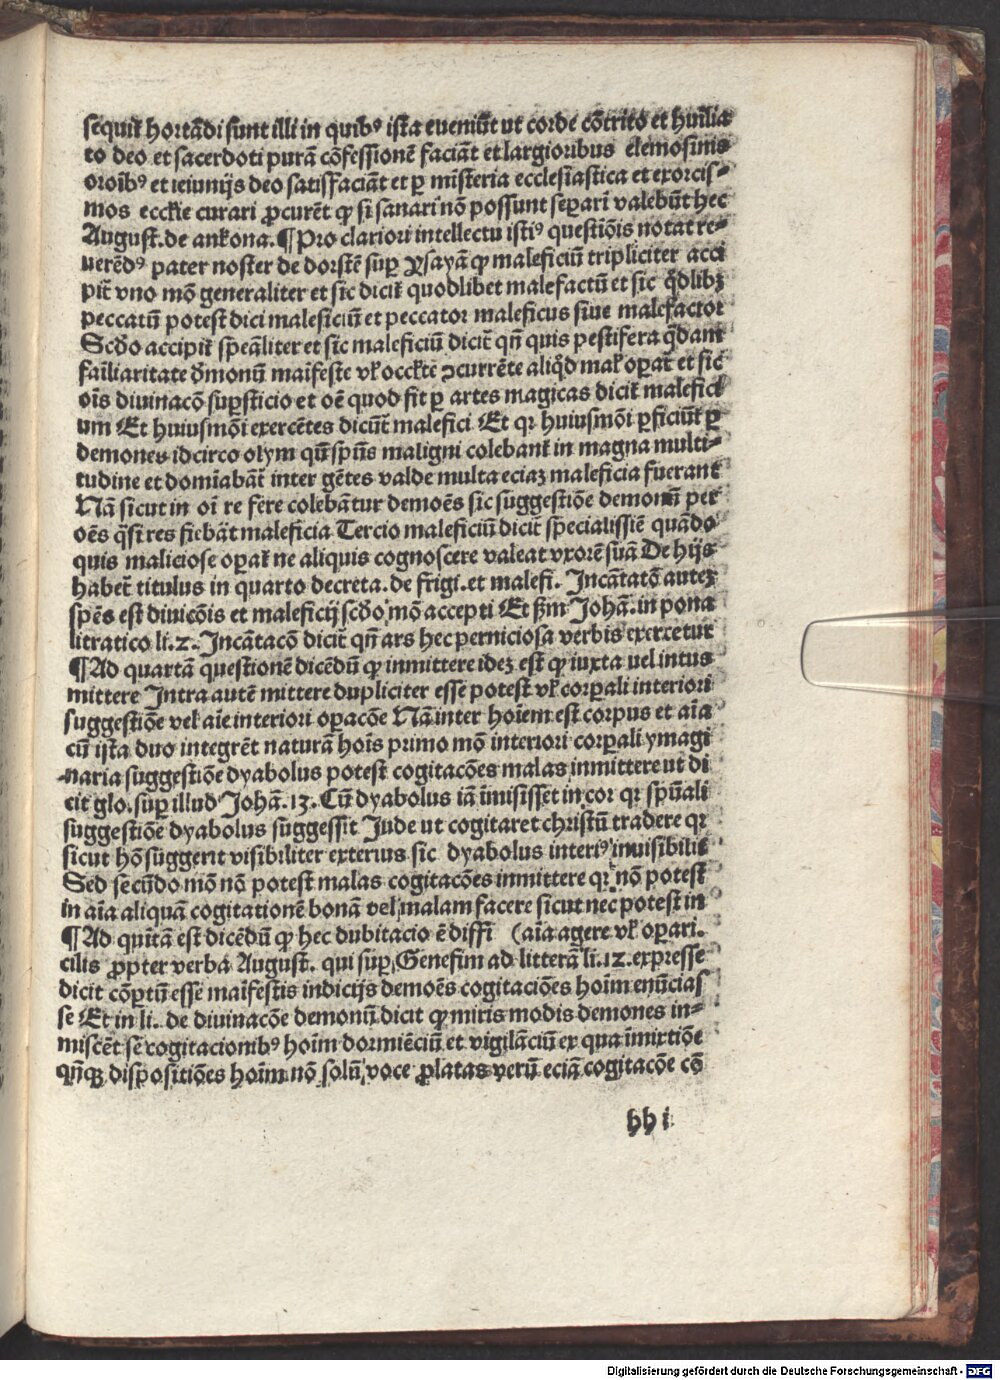 sequit̃ hortãdi sunt illi in quibꝰ ista eueniũt ut corde cõtrito et huĩlia
to deo et sacerdoti purã cõfessionẽ faciãt et largioribus elemosinis
oroĩbꝰ et ieiunijs deo satisfaciãt et ꝑ mĩsteria ecclesiastica et exorcis⸗
mos ecclẽie curari ꝓcurẽt ꝙ si sanari nõ possunt seꝑari valebũt hec
August. de ankona. ¶ Pro clariori intellectu istiꝰ questiõis notat re⸗
uerẽdꝰ pater noster de dorstẽ suꝑ ysayã ꝙ maleficiũ tripliciter acci
pit̃ vno mõ generaliter et sic dicit̃ quodlibet malefactũ et sic q̃dlibꝫ
peccatũ potest dici maleficiũ et peccator maleficus siue malefactor
Scd̃o accipit̃ speãliter et sic maleficiũ dicit̃ qñ quis pestifera q̃dam
faĩliaritate d̃monũ maĩfeste vl̃ occl̃te ꝯcurrẽte aliq̃d mal̃ oꝑat̃ et sic
oĩs diuinacõ suꝑsticio et oẽ quod fit ꝑ artes magicas dicit̃ malefici
um Et huiusmõi exercẽtes dicũt̃ malefici Et qꝛ huiusmõi ꝑficiũt̃ ꝑ
demones idcirco olym qñ sp̃ũs maligni colebant̃ in magna multi⸗
tudine et domĩabãt̃ inter gẽtes valde multa eciaꝫ maleficia fuerant
Nã sicut in oĩ re fere colebãtur demoẽs sic suggestiõe demonũ per
oẽs q̃si res fiebãt maleficia Tercio maleficiũ dicit̃ specialissiẽ quãdo
quis maliciose oꝑat̃ ne aliquis cognoscere valeat vxorẽ suã De hijs
habet̃ titulus in quarto decreta. de frigi. et malefi. Incãtatõ auteꝫ
spẽs est diuicõis et maleficij scd̃o mõ accepti Et ẜm Johã. in pona
litratico li. 2. Incãtacõ dicit̃ qñ ars hec perniciosa verbis exercetur
¶ Ad quartã questionẽ dicẽdũ ꝙ inmittere ideꝫ est ꝙ iuxta uel intus
mittere Intra autẽ mittere dupliciter esse potest vl̃ corꝑali interiori
suggestiõe vel aĩe interiori oꝑacõe Nã inter hoĩem est corpus et aĩa
cũ ista duo integrẽt naturã hoĩs primo mõ interiori corꝑali ymagi
naria suggestiõe dyabolus potest cogitacões malas inmittere ut di
cit glo. suꝑ illud Johã. 13. Cũ dyabolus iã ĩmisisset in cor qꝛ sp̃ũali
suggestiõe dyabolus suggessit Jude ut cogitaret christũ tradere qꝛ
sicut hõ suggerit visibiliter exterius sic dyabolus interiꝰ inuisibilit̃
Sed secũdo mõ nõ potest malas cogitacões inmittere qꝛ nõ potest
in aĩa aliquã cogitationẽ bonã vel malam facere sicut nec potest in
¶ Ad quĩtã est dicẽdũ ꝙ hec dubitacio ẽ diffi (aĩa agere vl̃ oꝑari.
cilis ꝓpter verba August. qui suꝑ Genesim ad litterã li. 12. expresse
dicit cõꝑtũ esse maĩfestis indicijs demoẽs cogitaciões hoĩm enũcias
se Et in li. de diuinacõe demonũ dicit ꝙ miris modis demones in⸗
miscẽt se cogitacionibꝰ hoĩm dormiẽciũ et vigilãciũ ex qua ĩmixtiõe
qñqꝫ disposĩtiões hoĩm nõ solũ voce ꝓlatas verũ eciã cogitacõe cõ
hh i
Digitalisierung gefördert durch die Deutsche Forschungsgemeinschaft - DFG